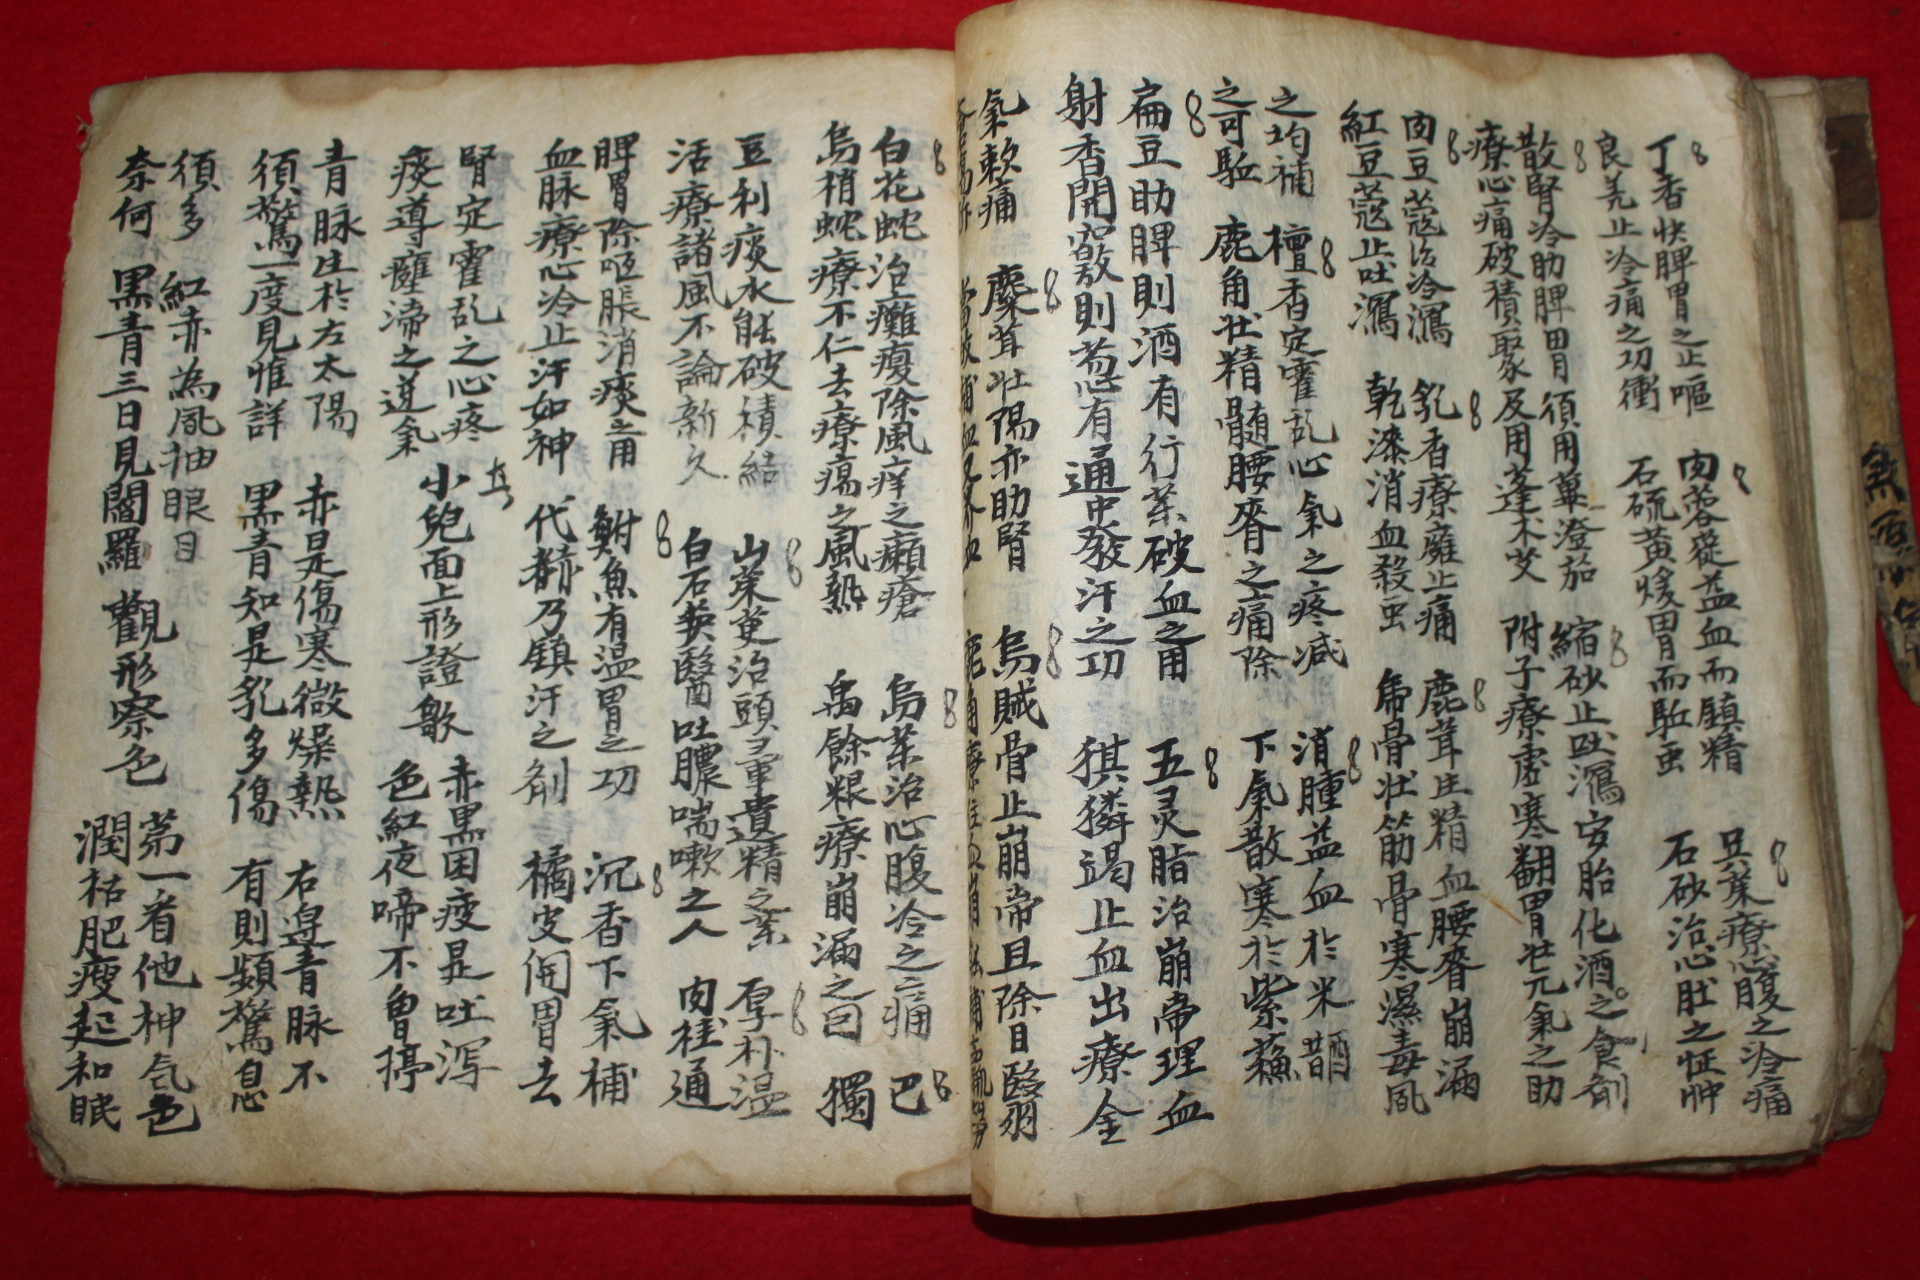 丁香快脾胃之止嘔
良羌止冷痛之功衝
肉蓉蓯益血而鎮精
石硫黃煖胃而駈虫
吳茱療心腹之冷痛
石砂治心肚之怔忡
散腎冷助脾胃須用蓽澄茄
療心痛破積聚及用蓬朮
縮砂止吐瀉安胎化酒之食劑
附子療虛寒翻胃壯元氣之助
肉豆蔻治冷瀉
紅豆蔻止吐瀉
乳香療癰止痛
乾漆消血殺虫
鹿茸生精血腰脊崩漏
虎骨壯筋骨寒濕毒風
之均補
之可駈
檀香定霍乱心氣之疼減
鹿角壯精髓腰脊之痛除
消腫益血於米醋
下氣散寒於紫蘇
扁豆助脾則酒有行葯破血之用
射香開竅則葱有通中發汗之功
五灵脂治崩帶理血
猉獜竭止血出療金
氣軟痛
麋茸壯陽亦助腎
烏賊骨止崩帶且除目翳
白花蛇治癱瘓除風痒之癩瘡
烏梢蛇療不仁去療瘍之風熱
烏葯治心腹冷之痛
禹餘粮療崩漏之曰
巴
獨
豆利痰水能破積結
活療諸風不論新久
山茱萸治頭暈遺精之葯
白石英醫吐膿喘嗽之人
厚朴温
肉桂通
脾胃除呕脹消痰之用
血脉療心冷止汗如神
鯽魚有温胃之功
代赭乃鎮汗之劑
沉香下氣補
橘皮開胃去
腎定霍乱之心疼
痰導壅滯之逆氣
小兒面上形證歌
赤黑困疲是吐泻
色紅夜啼不曾停
青脉生於左太陽
須驚一度見惟詳
赤是傷寒微燥熱
黑青知是乳多傷
右邉青脉不
有則頻驚息
須多
奈何
紅赤為風抽眼目
黑青三日見閻羅
觀形察色
第一看他神气色
潤枯肥瘦起和眠